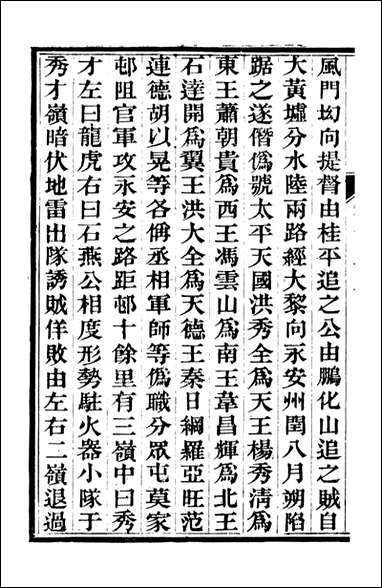 風門坳向提督由桂平追之公由鵬化山追之賊自
大黃墟分水陸兩路經大黎向永安州閏八月朔陷
踞之遂僭僞號太平天國洪秀全爲天王楊秀淸爲
東王蕭朝貴爲西王馮雲山爲南王韋昌輝爲北王
石達開爲翼王洪大全爲天德王秦日綱羅亞旺范
連德胡以晃等各偁丞相軍師等僞職分眾屯莫家
邨阻官軍攻永安之路距邨十餘里有三嶺中曰秀
才左曰龍虎右曰石燕公相度形勢駐火器小隊于
秀才嶺暗伏地雷出隊誘賊佯敗由左右二嶺退過